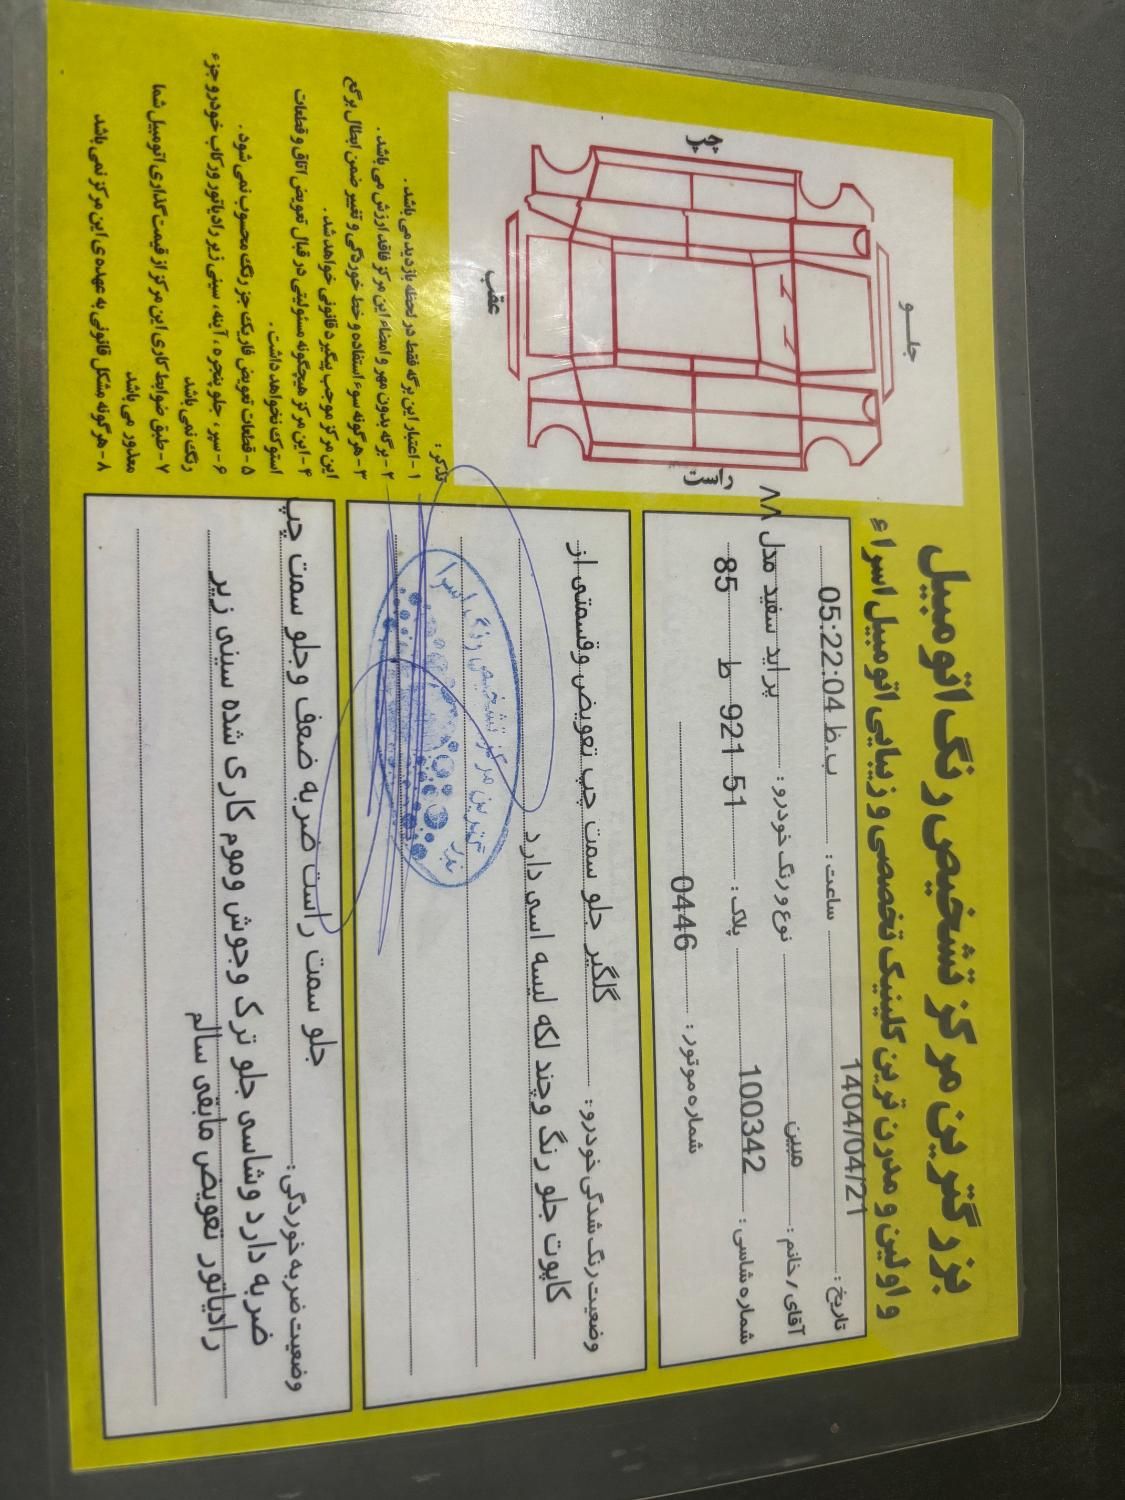 بزرگترین مرکز تشخیص رنگ اتومبیل
و اولین و مدرن ترین کلینیک تخصصی و زیبایی اتومبیل اسراء
تاریخ : 1404/04/21 ساعت : 05:22:04 ب.ظ
آقای / خانم : مبین نوع و رنگ خودرو : پراید سفید مدل ۸۸
شماره شاسی : 100342 پلاک : 51 921 ط 85
شماره موتور : 0446
وضعیت رنگ شدگی خودرو : گلگیر جلو سمت چپ تعویض وقسمتی از
کاپوت جلو رنگ وچند لکه لیسه اسی دارد
وضعیت ضربه خوردگی : جلو سمت راست ضربه ضعف وجلو سمت چپ
ضربه دارد وشاسی جلو ترک وجوش وموم کاری شده سینی زیر
رادیاتور تعویض مابقی سالم
جلو
عقب
چپ
راست
تذکر :
۱- اعتبار این برگه فقط در لحظه بازدید می باشد .
۲- برگه بدون مهر و امضاء این مرکز فاقد ارزش می باشد .
۳- هرگونه سوء استفاده و خط خوردگی و تغییر ضمن ابطال برگه
این مرکز موجب پیگیرد قانونی خواهد شد .
۴- این مرکز هیچگونه مسئولیتی در قبال تعویض اتاق و قطعات
استوک نخواهد داشت .
۵- قطعات تعویض فابریک جز رنگ محسوب نمی شود .
۶- سپر ، جلو پنجره ، آینه ، سینی زیر رادیاتور ورکاب خودرو جزء
رنگ نمی باشد
۷- طبق ضوابط کاری این مرکز از قیمت گذاری اتومبیل شما
معذور می باشد
۸- هرگونه مشکل قانونی به عهده ی این مرکز نمی باشد